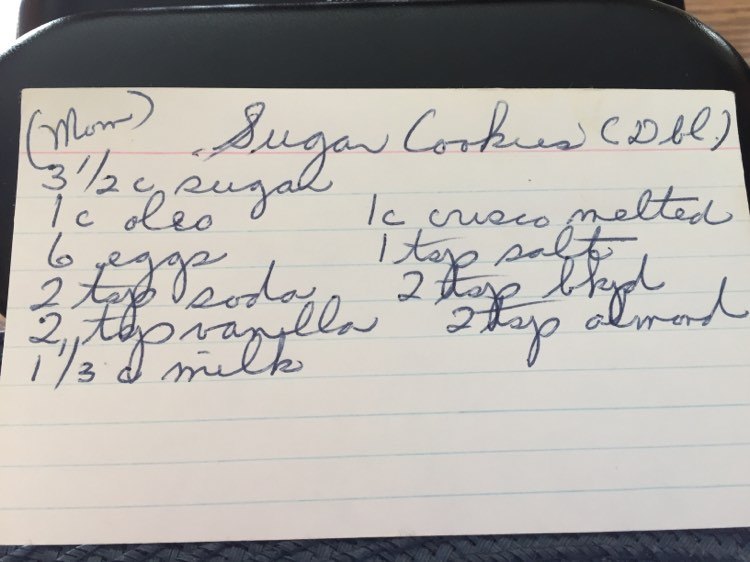 (Mom) Sugar Cookies (Dbl.)
3 1/2 c sugar
1 c oleo 1c crisco melted
6 eggs 1 tsp salt
2 tsp soda 2 tsp bkpd
2 tsp vanilla 2 tsp almond
1 1/3 c milk